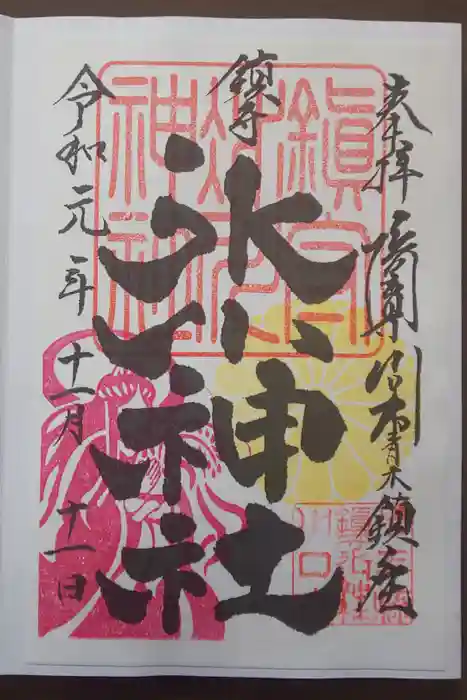 奉拝
川口市青木鎮座
鎮守
氷川神社
令和元年十一月十一日
鎮守氷川神社
川口